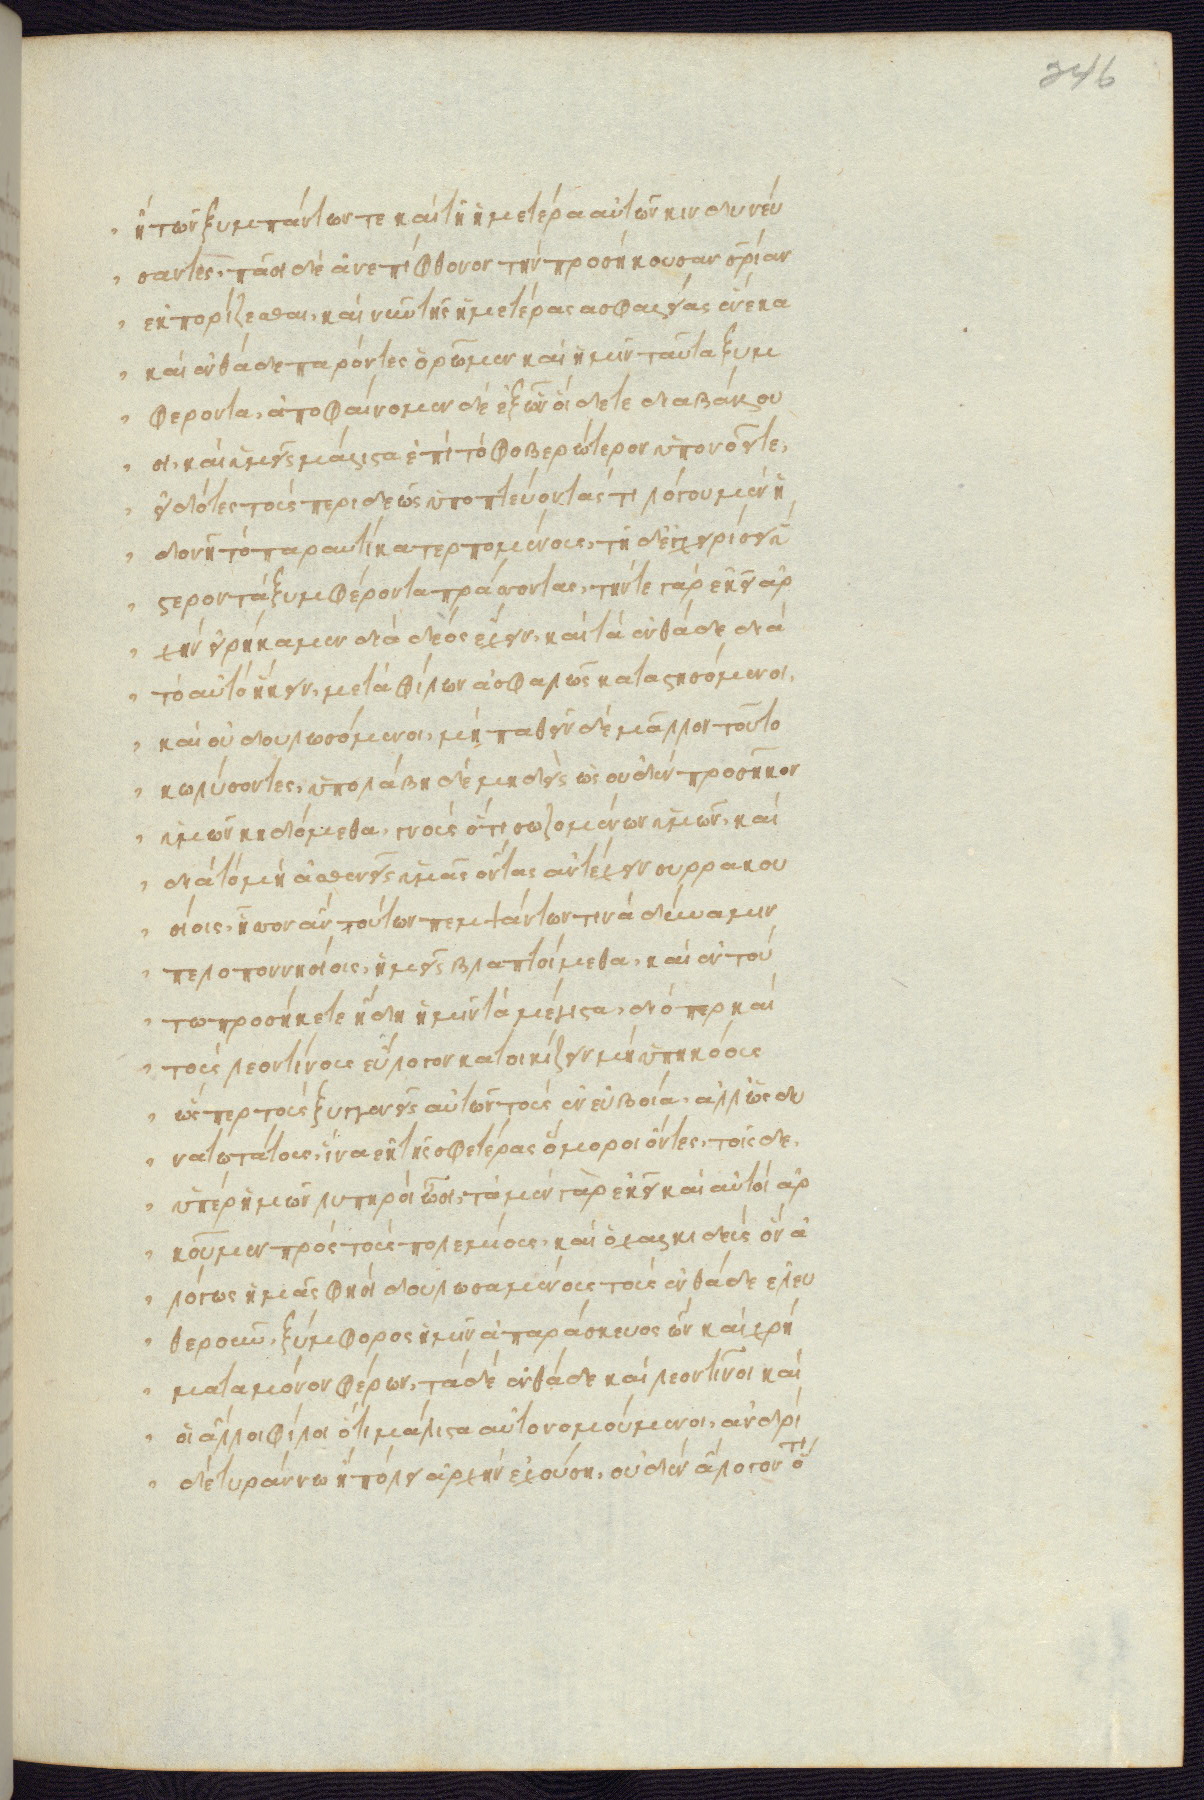 246
ἢ τῶν ξυμπάντων τε καὶ τῆ ἡμετέρα αὐτῶν κινδυνεύ
σαντες, πᾶσι δὲ ἀνεπίφθονον τὴν προσήκουσαν σρίαν
ἐκπορίζεσθαι, καὶ νῦν τῆς ἡμετέρας ἀσφαλείας ἕνεκα
καὶ ἐνθάδε παρόντες ὁρῶμεν καὶ ἡμῖν ταῦτα ξυμ
φέροντα, ἀποφαίνομεν δὲ ἐξ ὧν οἵδε τε διαβάλλου
σι, καὶ ὑμεῖς μάλιστα ἐπὶ τὸ φοβερώτερον ὑπονοεῖτε,
εἰδότες τοὺς περιδεῶς ὑποπτεύοντάς τι λόγου μὲν ἡ
δονῆ τὸ παραυτίκα τερπομένους, τῆ δ' ἐγχειρίσει ὕ
στερον τὰ ξυμφέροντα πράσσοντας, τήν τε γὰρ ἐκεῖ ἀρ
χὴν εἰρήκαμεν διὰ δέος ἔχειν, καὶ τὰ ἐνθάδε διὰ
τὸ αὐτὸ ἥκειν, μετὰ φίλων ἀσφαλῶς καταστησόμενοι,
καὶ οὐ δουλωσόμενοι, μὴ παθεῖν δὲ μᾶλλον τοῦτο
κωλύσοντες, ὑπολάβη δὲ μηδεὶς ὡς οὐδὲν προσῆκον
ὑμῶν κηδόμεθα, γνοὺς ὅτι σωζομένων ὑμῶν, καὶ
διὰ τὸ μὴ ἀσθενεῖς ὑμᾶς ὄντας ἀντέχειν συρρακου
σίοις, ἧσσον ἂν τούτων πεμψάντων τινὰ δύναμιν
πελοποννησίοις, ἡμεῖς βλαπτοίμεθα, καὶ ἐν τού
τω προσήκετε ἤδη ἡμῖν τὰ μέγιστα, διόπερ καὶ
τοὺς λεοντίνους εὔλογον κατοικίζειν μὴ ὑπηκόους
ὥσπερ τοὺς ξυγγενεῖς αὐτῶν τοὺς ἐν εὐβοία, ἀλλ' ὡς δυ
νατωτάτους, ἵνα ἐκ τῆς σφετέρας ὅμοροι ὄντες, τοῖσδε,
ὑπὲρ ἡμῶν λυπηροὶ ὦσι, τὰ μὲν γὰρ ἐκεῖ καὶ αὐτοὶ ἀρ
κοῦμεν πρὸς τοὺς πολεμίους, καὶ ὁ χαλκιδεὺς ὃν ἀ
λόγως ἡμᾶς φησὶ δουλωσαμένους τοὺς ἐνθάδε ἐλευ
θεροῦν, ξύμφορος ἡμῖν ἀπαράσκευος ὢν καὶ χρή
ματα μόνον φέρων, τὰ δὲ ἐνθάδε καὶ λεοντῖνοι καὶ
οἱ ἄλλοι φίλοι ὅτι μάλιστα αὐτονομούμενοι, ἀνδρὶ
δὲ τυράννω ἢ πόλει ἀρχὴν ἐχούση, οὐδὲν ἄλογον ὅ τι